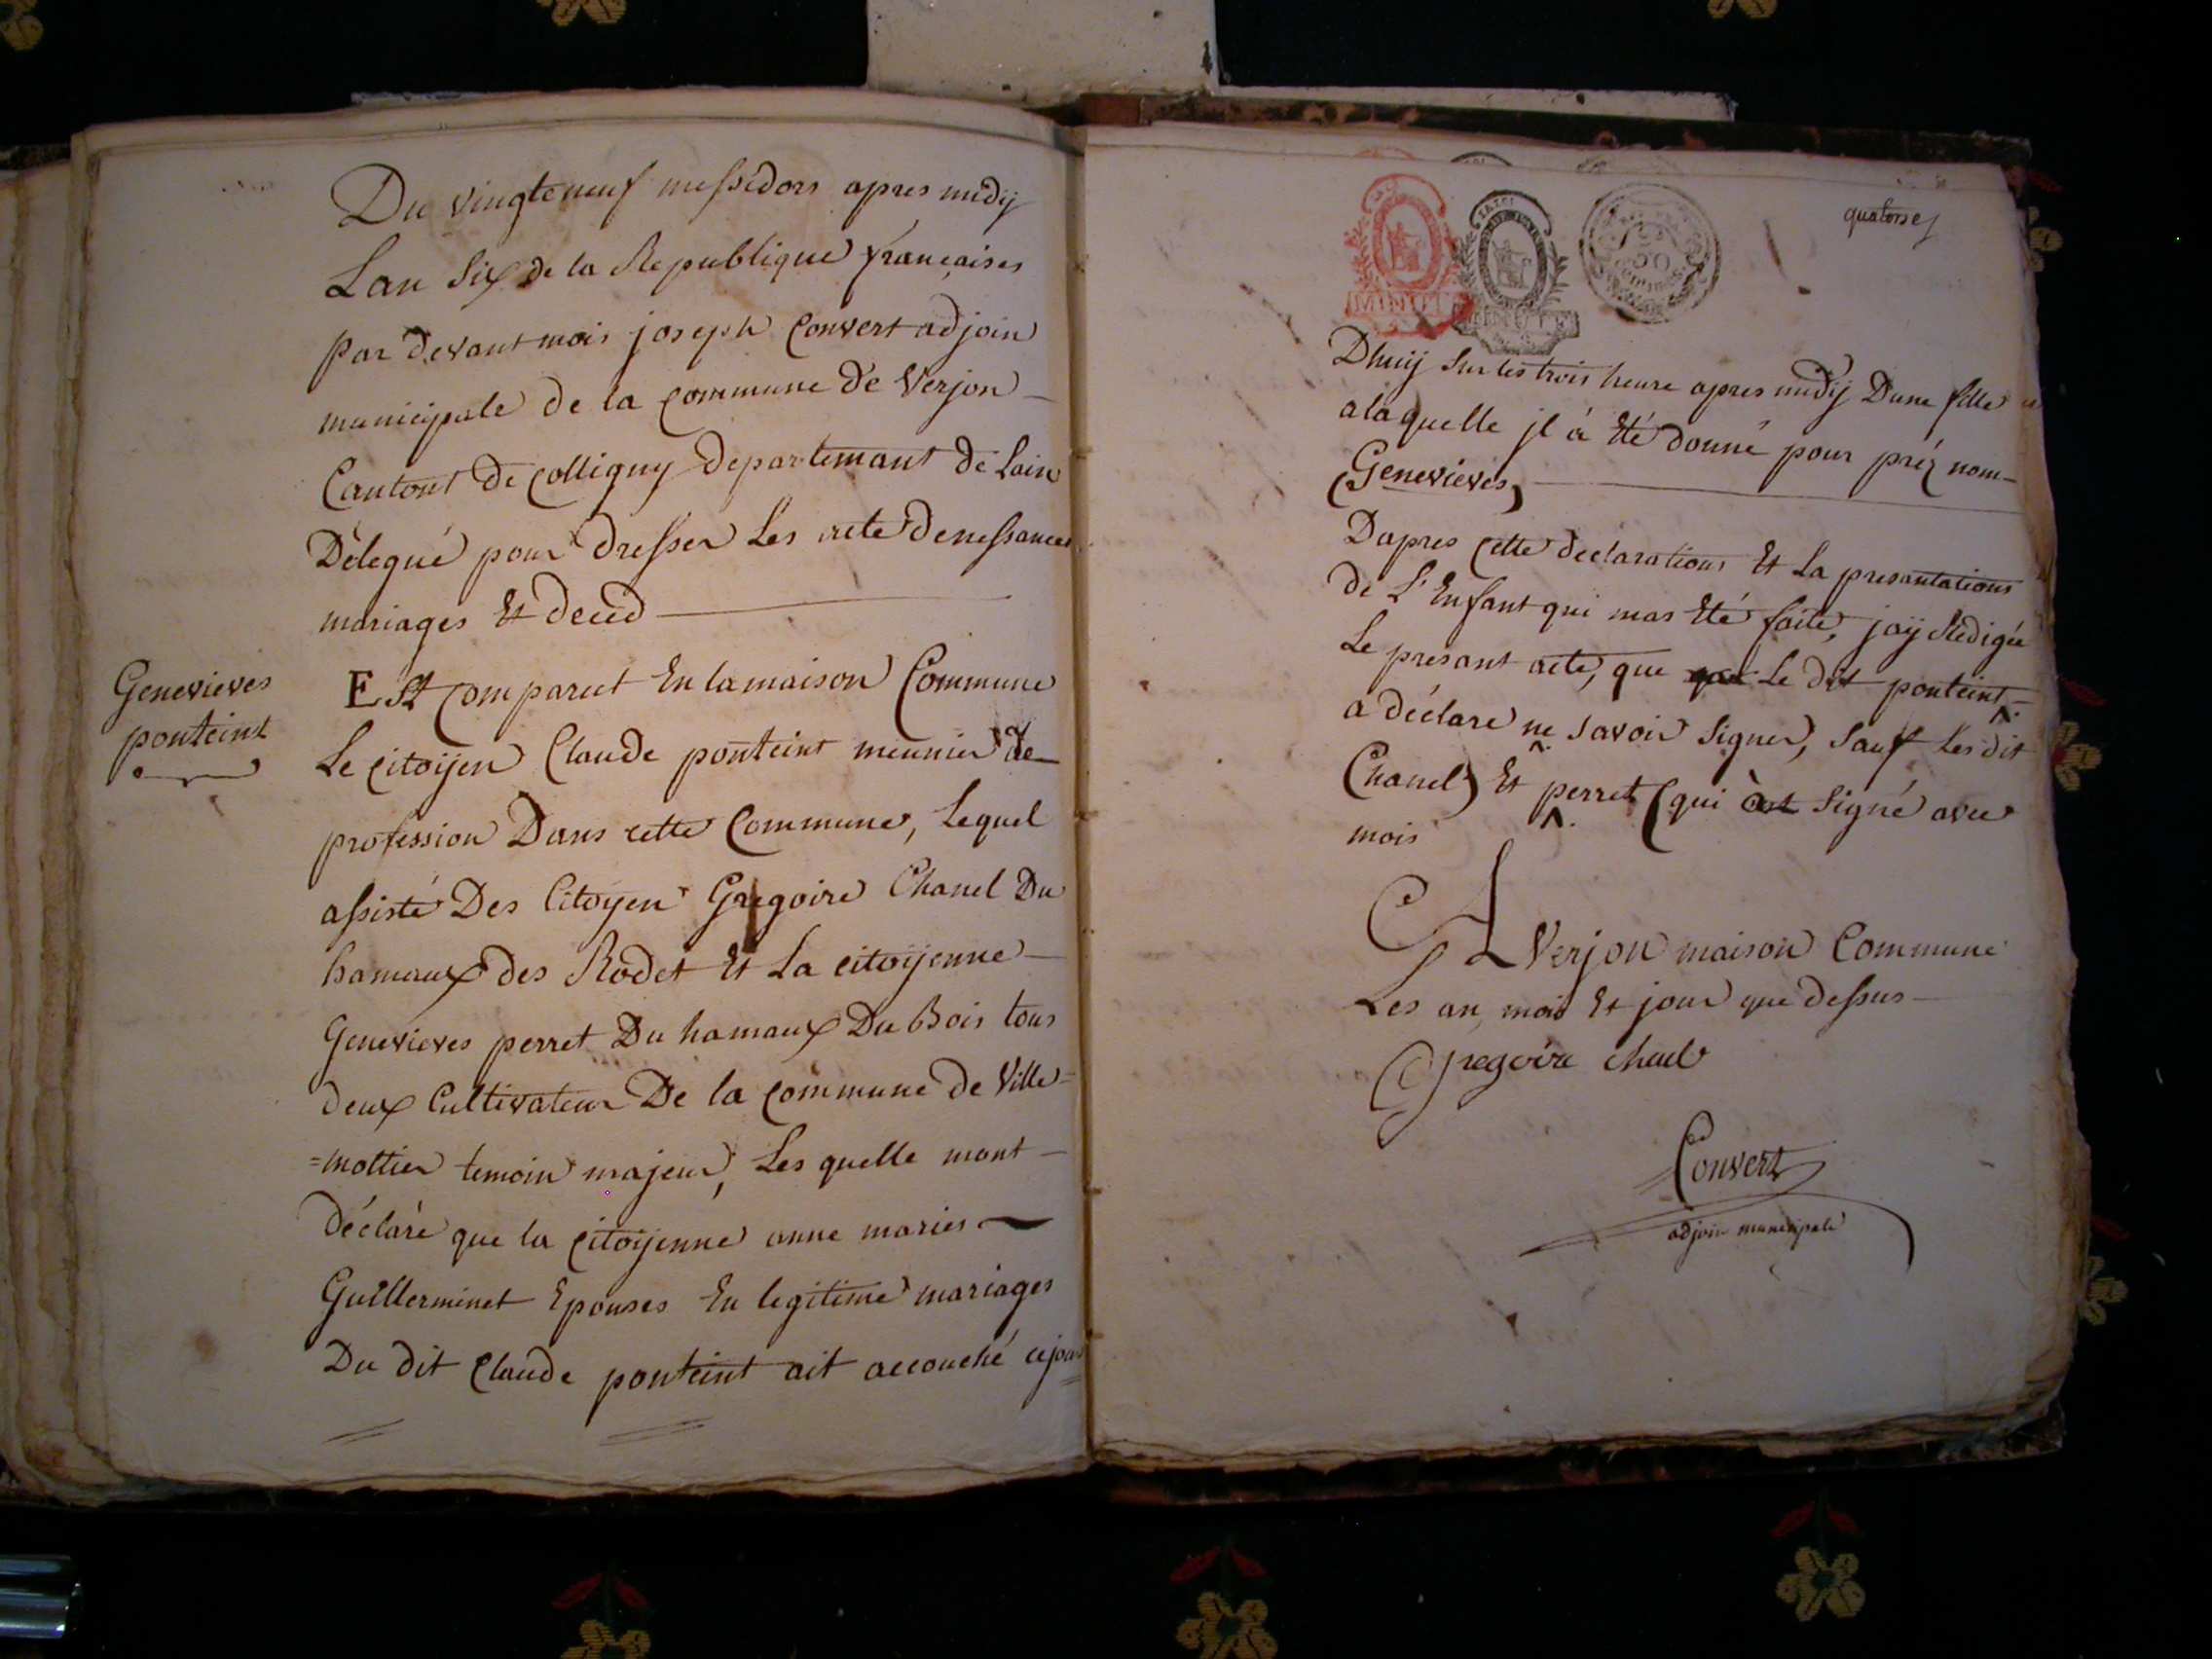 Du vingteneuf messidors apres midÿ
Lan Six de la Republique françaises
par devant mois joseph Convert adjoin
municipale de la Commune de Verjon
Cantont de Colligny departemant de Lain
Délegué pour dresser Les acte denessances
mariages Et deced
Genevieves
ponteint
ESt Comparut En lamaison Commune
Le Citoÿen Claude ponteint meunier de
profession Dans cette Commune, Lequel
assisté Des Citoÿen Gregoire Chanel Du
hameaux des Rodet Et La citoÿenne
Genevieves perret Du hamaux Du Bois tous
deux Cultivateur De la Commune de Ville=
=mottier temoin majeur, Les quelle mont
déclaré que la Citoÿenne anne maries
Guillerminet Epouses En legitime mariages
Du dit Claude ponteint ait accouché cejour
quatorse
50
MINUTE
MINUTE
Dhuÿ Sur les trois heure apres midÿ Dune fille
alaquelle jl à Eté donné pour préz nom
(Genevieves)
Dapres Cette declarations Et La presantations
de L'Enfant qui mas Eté faite, jaÿ Redigée
Le presant acte, que Le dit ponteint
a déclare ne savoir Signer, Sauf Les dit
Chanel) Et perret (qui Signé avec
mois
A Verjon maison Commune
Les an, mois Et jour que dessus
Gregoire
Convert
adjoin municipale